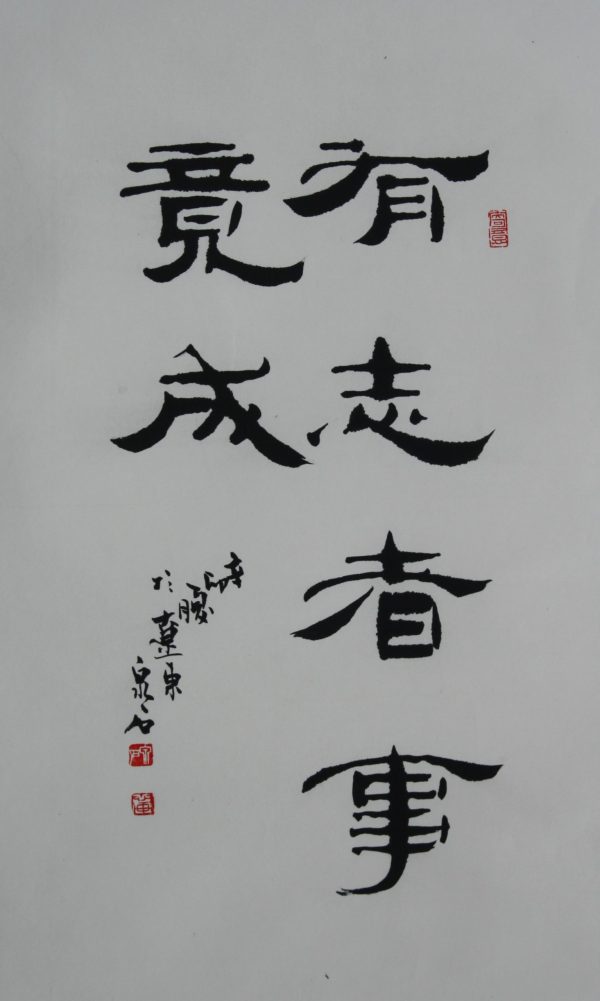 有志者事
竟成
於遼東
泉石